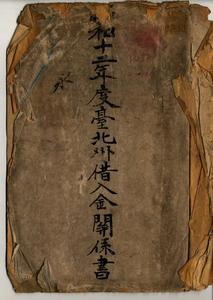 和十二年度臺北州借入金關係書
永